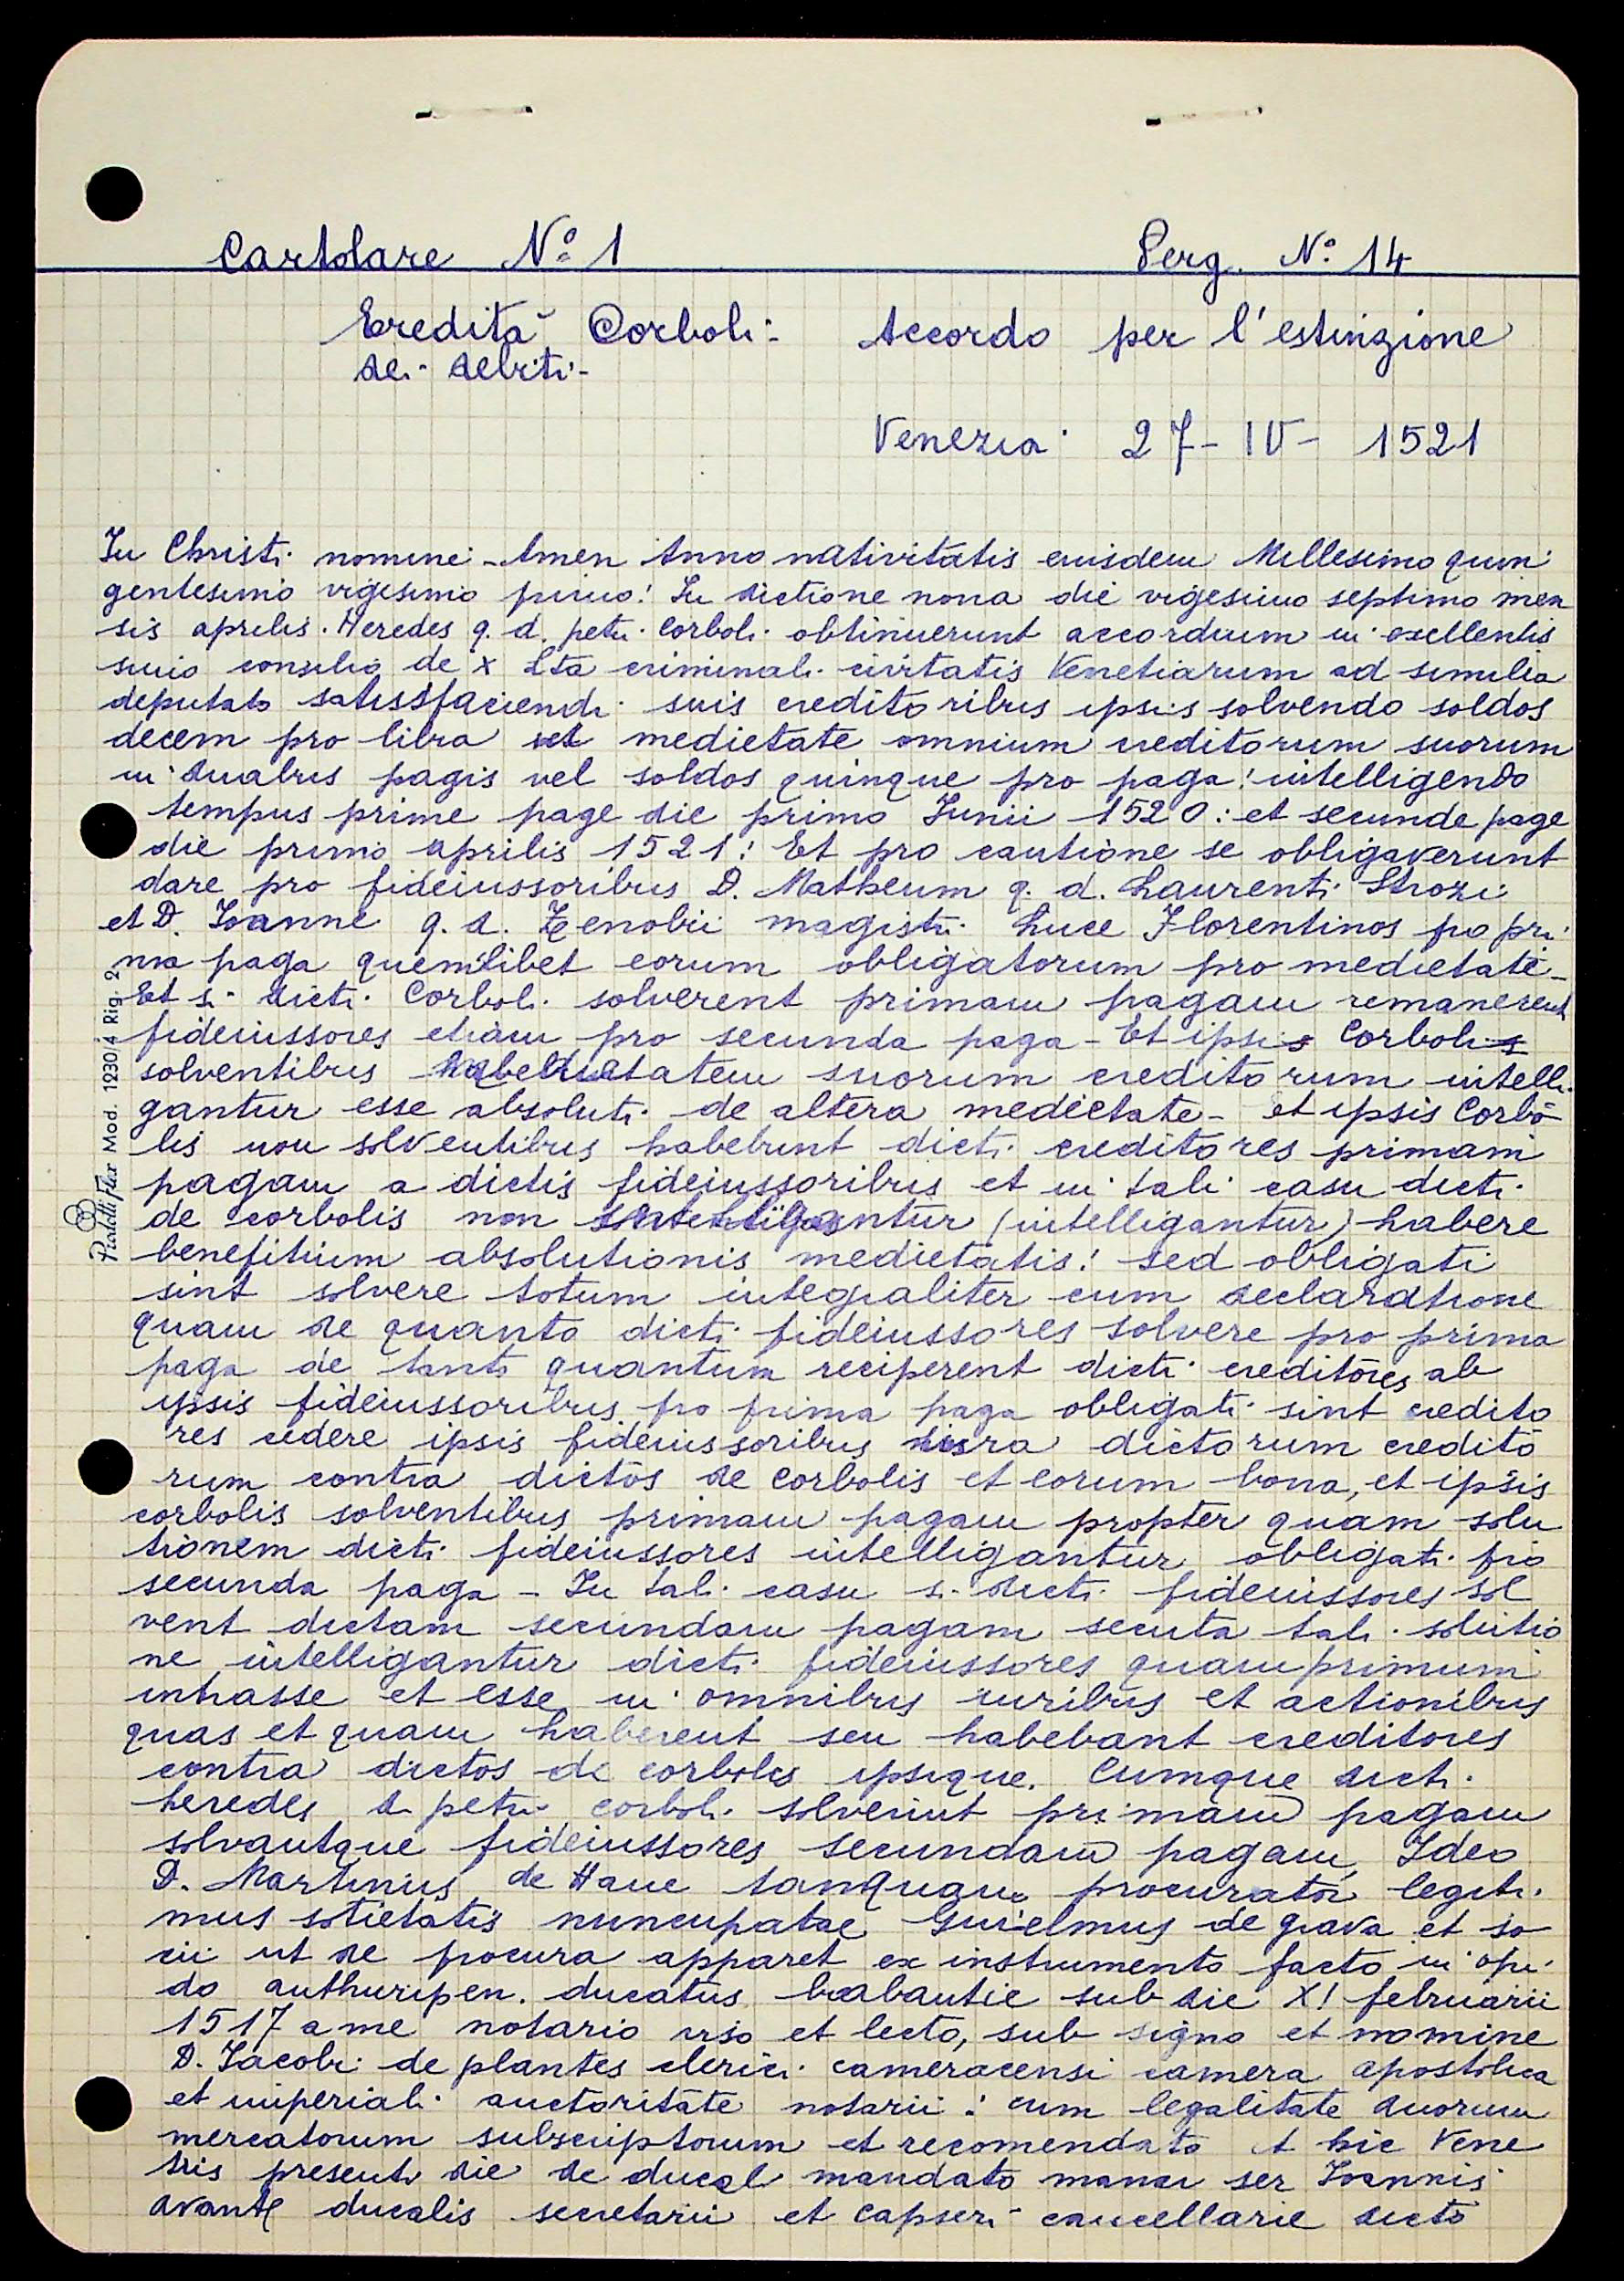 Cartolare N° 1 Perg. N° 14
Eredità Corboli: Accordo per l'estinzione
dei debiti-
Venezia 27-IV- 1521
In Christi nomine - Amen Anno nativitatis eiusdem Millesimo quin
gentesimo vigesimo primo: In dictione nona die vigesimo septimo men
sis aprilis. Heredes q. d. petri Corboli obtinuerunt accordium in excellentis
simo consilio de X Lta criminali civitatis Venetiarum ad similia
deputato satissfaciendi suis creditoribus ipsis solvendo soldos
decem pro libra vel medietate omnium creditorum suorum
in duabus pagis vel soldos quinque pro paga: intelligendo
tempus prime page die primo Junii 1520: et secunde page
die primo aprilis 1521: Et pro cautione se obligaverunt
dare pro fideiussoribus D. Matheum q. d. Laurenti Strozi
et D. Ioanne q. d. Zenobii magistri Luce Florentinos pro pri
ma paga quemlibet eorum obligatorum pro medietate-
Et si dicti Corboli solverent primam pagam remanerent
fideiussores etiam pro secunda paga - Et ipsis Corbolis
solventibus medietatem suorum creditorum intelli
gantur esse absoluti de altera medietate - et ipsis Corbo
lis non solventibus habebunt dicti creditores primam
pagam a dictis fideiussoribus et in tali casu dicti
de corbolis non intelligantur (intelligantur) habere
benefitium absolutionis medietatis: sed obligati
sint solvere totum integraliter cum declaratione
quam de quanto dicti fideiussores solvere pro prima
paga de tanto quantum reciperent dicti creditores ab
ipsis fideiussoribus pro prima paga obligati sint credito
res cedere ipsis fideiussoribus iura dictorum credito
rum contra dictos de corbolis et eorum bona, et ipsis
corbolis solventibus primam pagam propter quam solu
tionem dicti fideiussores intelligantur obligati pro
secunda paga - In tali casu si dicti fideiussores sol
vent dictam secundam pagam secuta tali solutio
ne intelligantur dicti fideiussores quamprimum
intrasse et esse in omnibus iuribus et actionibus
quas et quam haberent seu habebant creditores
contra dictos de corbolis ipsique. Cumque dicti
heredes d. petri corboli solverint primam pagam
solvantque fideiussores secundam pagam, Ideo
D. Martinus de Hane tanquam procurator legiti
mus sotietatis nuncupatae Guielmus de grava et so
cii ut de procura apparet ex instrumento facto in opi
do anthuripen. ducatus brabantie sub die XI februarii
1517 a me notario viso et lecto, sub signo et nomine
D. Iacobi de plantes clerici cameracensi camera apostolica
et imperiali auctoritate notarii: cum legalitate duorum
mercatorum subscriptorum et recomendato et hic Vene
tiis presenti die de ducal mandato manu ser Ioannis
avante ducalis secretarii et capseri cancellarie dicto
Pigna Mod. 1230/4 Rig. 2